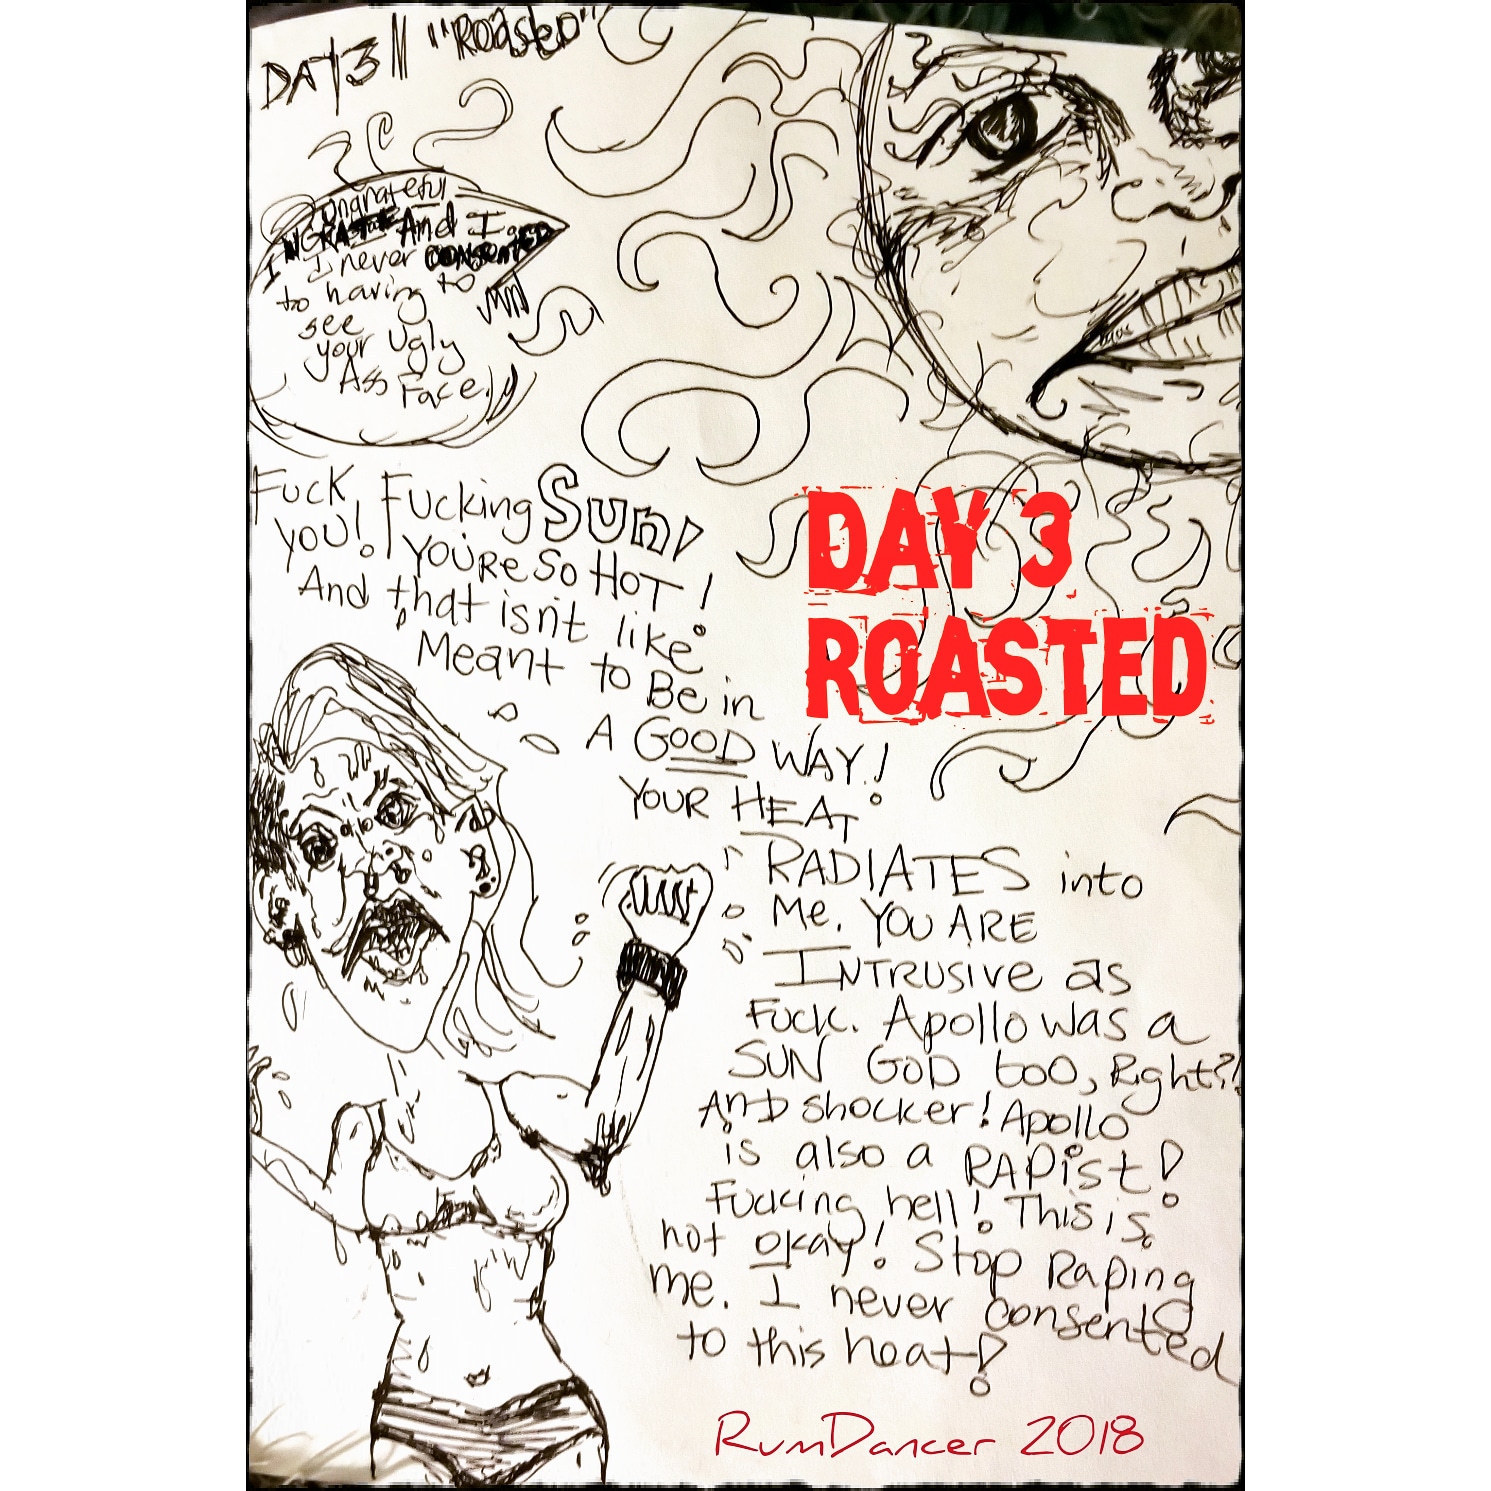 DAY 3 || "Roasted"
Ungrateful
INGRATE And I
I never CONSENTED
to having to
see
your Ugly
Ass Face.
Fuck Fucking Sun!
you! YOU'RE SO HOT!
And that isn't like
Meant to Be in
A GOOD WAY!
YOUR HEAT
RADIATES into
Me. YOU ARE
INTRUSIVE as
Fuck. Apollo was a
SUN GOD too, Right?!
AND shocker! Apollo
is also a RAPist!
Fucking hell! This is
not okay! Stop Raping
me. I never consented
to this heat!
DAY 3
ROASTED
RumDancer 2018